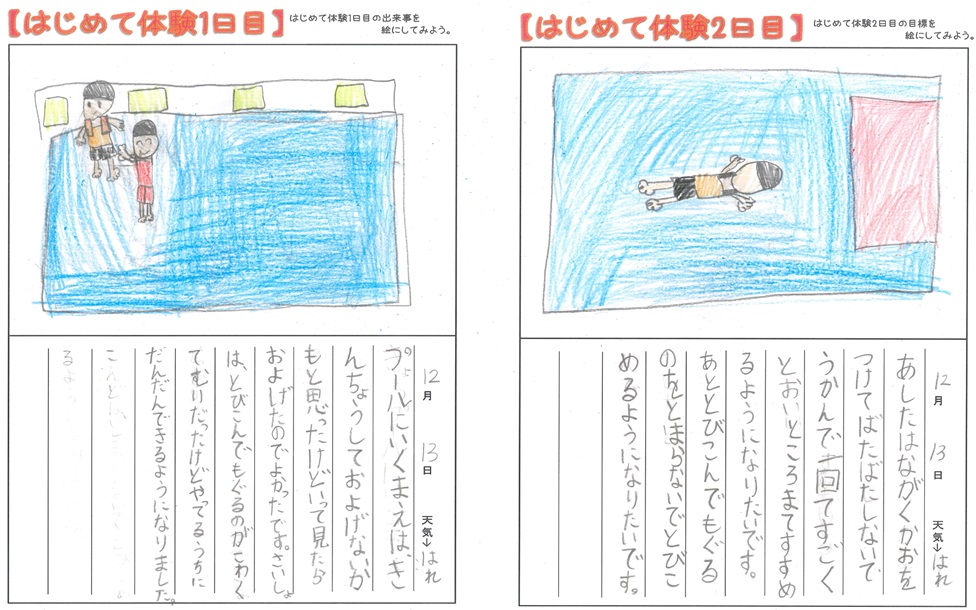 【はじめて体験1日目】
はじめて体験1日目の出来事を
絵にしてみよう。
12月 13日 天気→はれ
プールにいくまえは、き
んちょうしておよげないか
もと思ったけどいって見たら
およげたのでよかったです。さいしょ
は、とびこんでもぐるのがこわく
てむりだったけどやってるうちに
だんだんできるようになりました。
【はじめて体験2日目】
はじめて体験2日目の目標を
絵にしてみよう。
12月 13日 天気→はれ
あしたはながくかおを
つけてばたばたしないで
うかんで一回てすごく
とおいところまですすめ
るようになりたいです。
あととびこんでもぐる
のをとまらないでとびこ
めるようになりたいです。